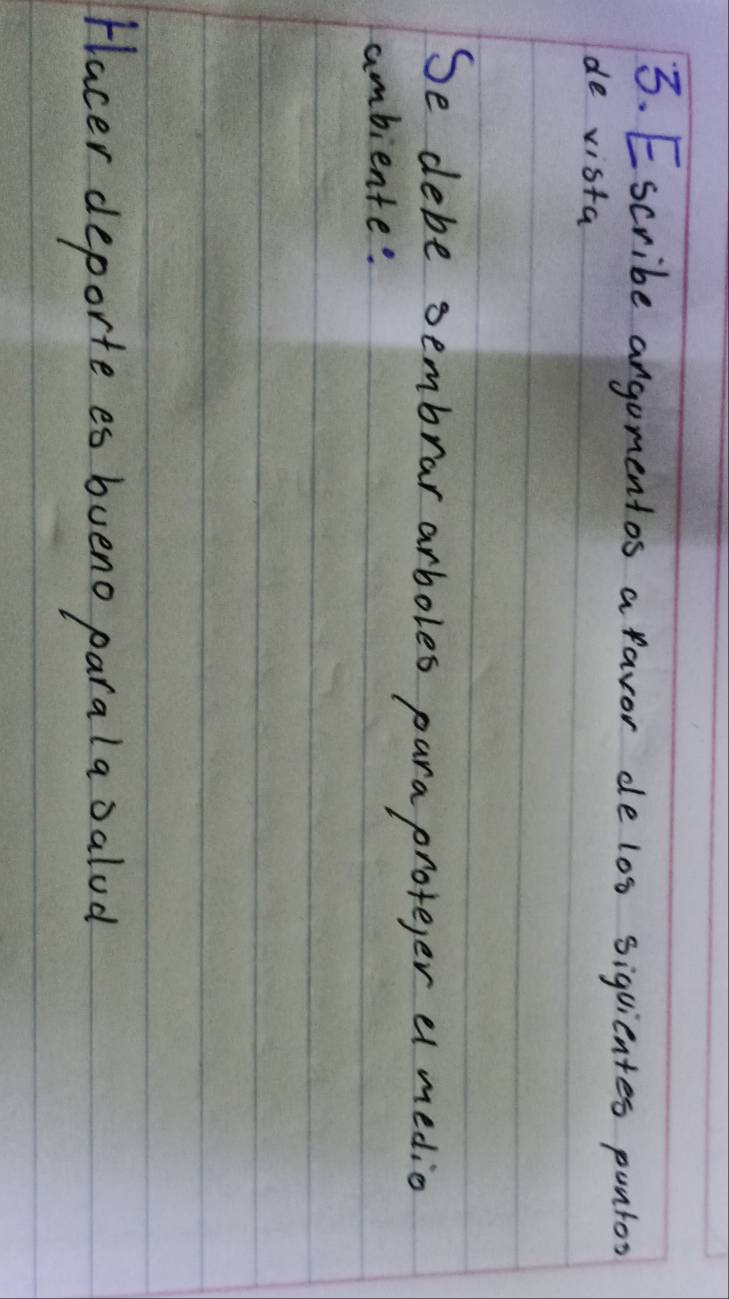 3. Escribe argumentos a favor de los siguientes puntos
de vista
Se debe sembrar arboles para protejer el medio
ambiente:
Hacer deporte es bueno para la salud